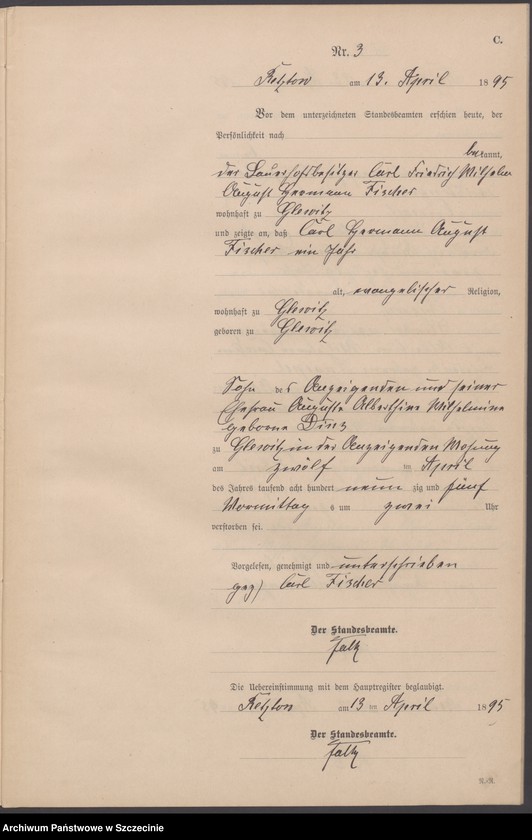 C.
Nr. 3
Ketzlow am 13. April 1895
Vor dem unterzeichneten Standesbeamten erschien heute, der
Persönlichkeit nach
bekannt,
der Bauerhofsbesitzer Carl Friedrich Wilhelm
August Hermann Fischer
wohnhaft zu Glewitz
und zeigte an, daß Carl Hermann August
Fischer ein Jahr
alt, evangelischer Religion,
wohnhaft zu Glewitz
geboren zu Glewitz
Sohn des Anzeigenden und seiner
Ehefrau Auguste Albertine Wilhelmine
geborne
zu Glewitz in des Anzeigenden Wohnung
am zwölf im April
des Jahres tausend acht hundert neun zig und fünf
Vormittags um zwei Uhr
verstorben sei.
Vorgelesen, genehmigt und unterschrieben
gez) Carl Fischer
Der Standesbeamte.
Falk
Die Uebereinstimmung mit dem Hauptregister beglaubigt.
Ketzlow am 13 im April 1895
Der Standesbeamte.
Falk
Archiwum Państwowe w Szczecinie